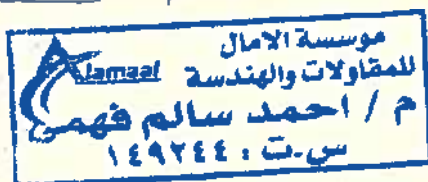 موسسة الامال
للمقاولات والهندسة
Alamaal
م / احمد سالم فهمى
س.ت : ١٤٩٢٤٤